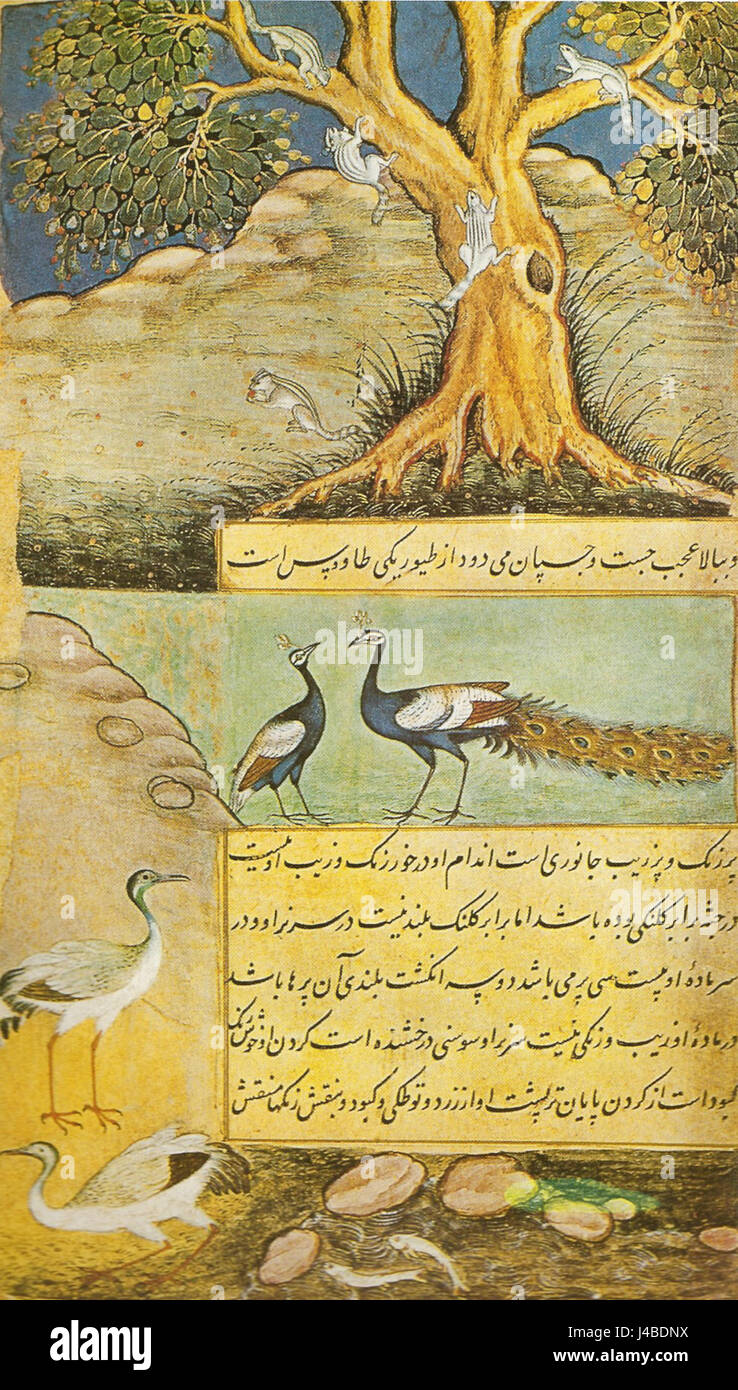 وببالا عجب جست وجسپان می دود از طیور یکی طاووس است
پر زنک و پر زیب جانوری است اندام او در خور زنک و زیب او نیست
در جثه برابر کلنکی بوده باشد اما برابر کلنک بلند نیست در سر نر او و در
سر ماده او بیست سی پر می باشد دو سه انکشت بلندی آن پرها باشد
در مادهٔ او زیب و زنکی نیست سر نر او سوسنی درخشنده است کردن او خوش رنک
کبود است از کردن پایان تر پشت او از زرد و توطکی و کبود و بنفش زنکها منقش
alamy stock photo
alamy
Image ID: J4BDNX
www.alamy.com